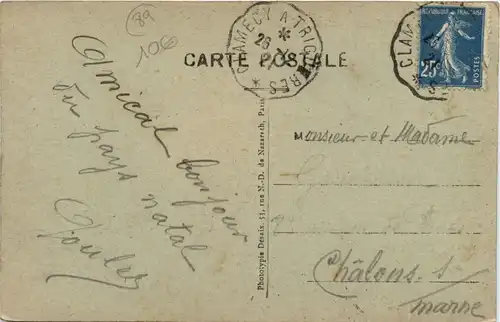 89
106
CARTE POSTALE
CLAMECY A TRIGUERES
28
REPUBLIQUE FRANÇAISE
25
POSTES
CLAM
Amical bonjour
du pays natal
Phototypie Desaix, 55, rue N.-D. de Nazareth, Paris
Monsieur et Madame
Châlons s/
Marne